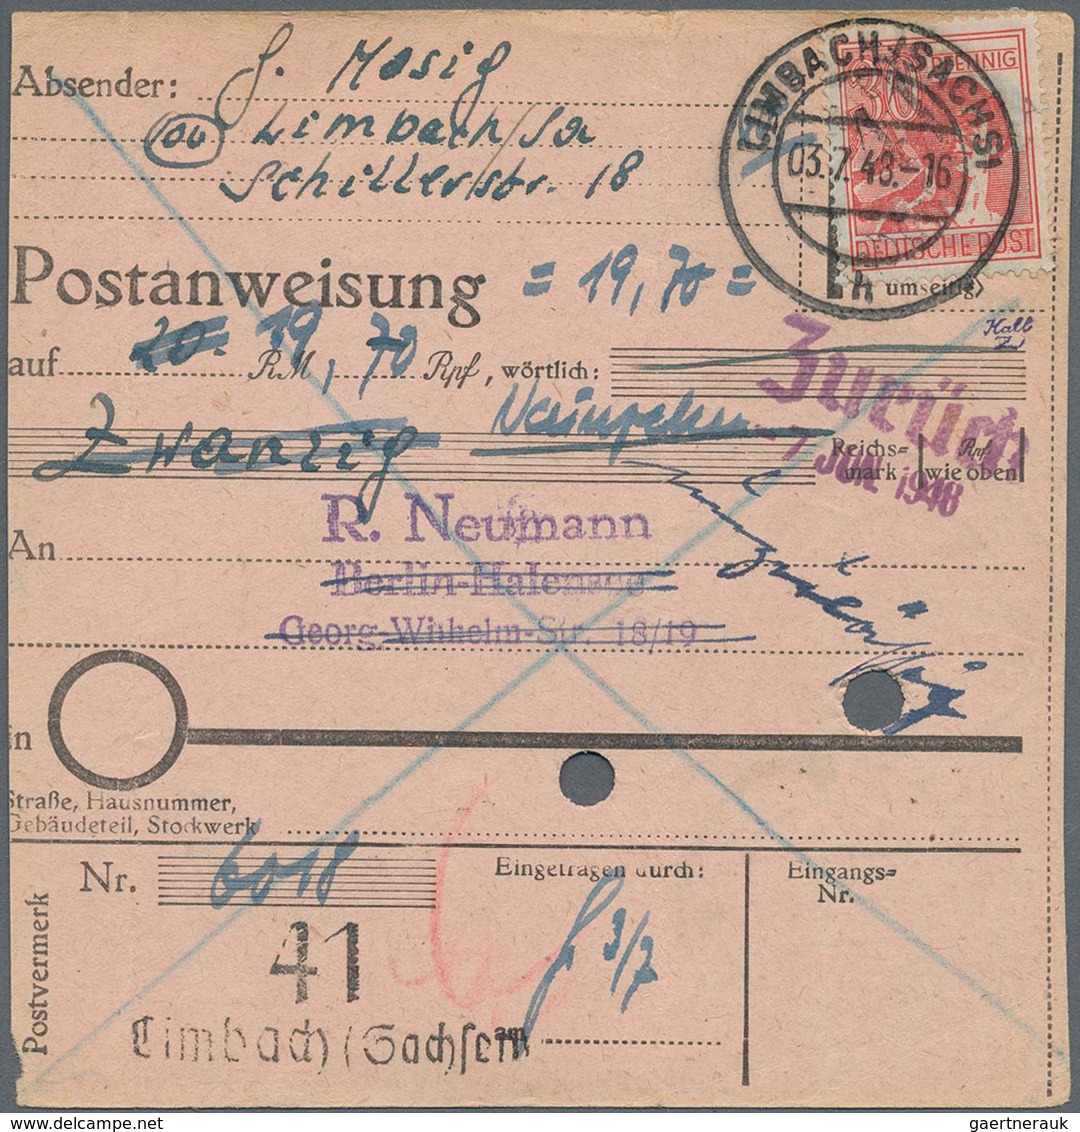 Absender: G. Mosig
10b Limbach/Sa
Schillerstr. 18
LIMBACH (SACHS)
03.7.48.-16
h
30 PFENNIG
DEUTSCHE POST
Postanweisung = 19,70 =
umseitig)
auf 20.- 19, 70 RM Rpf, wörtlich:
Zwanzig Neunzehn
Zurück
-7. JUL. 1948
Reichs= mark
Rpf wie oben
An R. Neumann
Berlin-Halensee
Georg-Wilhelm-Str. 18/19
unzulässig
in
Straße, Hausnummer,
Gebäudeteil, Stockwerk
Postvermerk
Nr. 6018
Eingetragen durch:
3/7
Eingangs=
Nr.
41
Limbach (Sachsen)
am
gaertnerauk